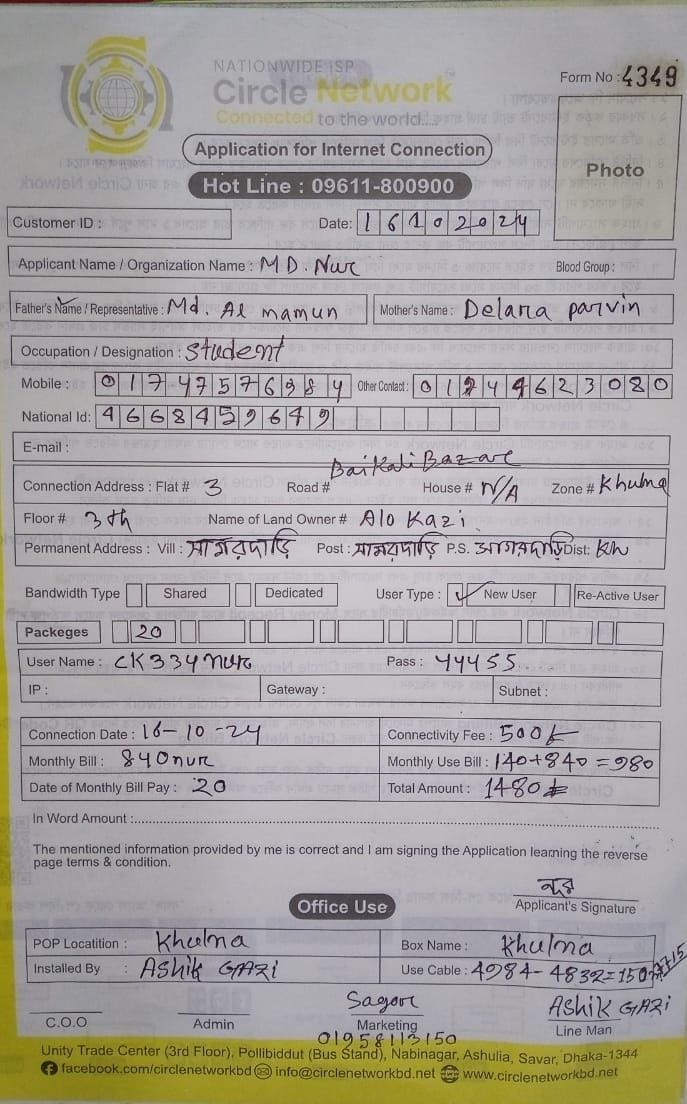 NATIONWIDE ISP
Circle Network
Connected to the world....
Form No : 4349
Application for Internet Connection
Photo
Hot Line : 09611-800900
Customer ID : Date: 16102024
Applicant Name / Organization Name : MD. Nur Blood Group :
Father's Name / Representative : Md. Al mamun Mother's Name : Delara parvin
Occupation / Designation : Student
Mobile : Other Contact :
National Id: 4668459649
E-mail :
Baikali Bazar
Connection Address : Flat # 3 Road # House # N/A Zone # Khulna
Floor # 3th Name of Land Owner # Alo Kazi
Permanent Address : Vill : সাগরদাড়ি Post : সাগরদাড়ি P.S. Dist: Kh
Bandwidth Type Shared Dedicated User Type : ✓ New User Re-Active User
Packeges 20
User Name : CK334nur Pass : 44455
IP : Gateway : Subnet :
Connection Date : 16-10-24 Connectivity Fee : 500/-
Monthly Bill : 840nur Monthly Use Bill : 140+840 = 980
Date of Monthly Bill Pay : 20 Total Amount : 1480/-
In Word Amount :
The mentioned information provided by me is correct and I am signing the Application learning the reverse
page terms & condition.
নুর
Applicant's Signature
Office Use
POP Locatition : Khulna Box Name : Khulna
Installed By : ASHIK GAZI Use Cable : 4984- 4832=150
Sagor ASHIK GAZI
C.O.O Admin Marketing Line Man
01958113150
Unity Trade Center (3rd Floor), Pollibiddut (Bus Stand), Nabinagar, Ashulia, Savar, Dhaka-1344
facebook.com/circlenetworkbd info@circlenetworkbd.net www.circlenetworkbd.net